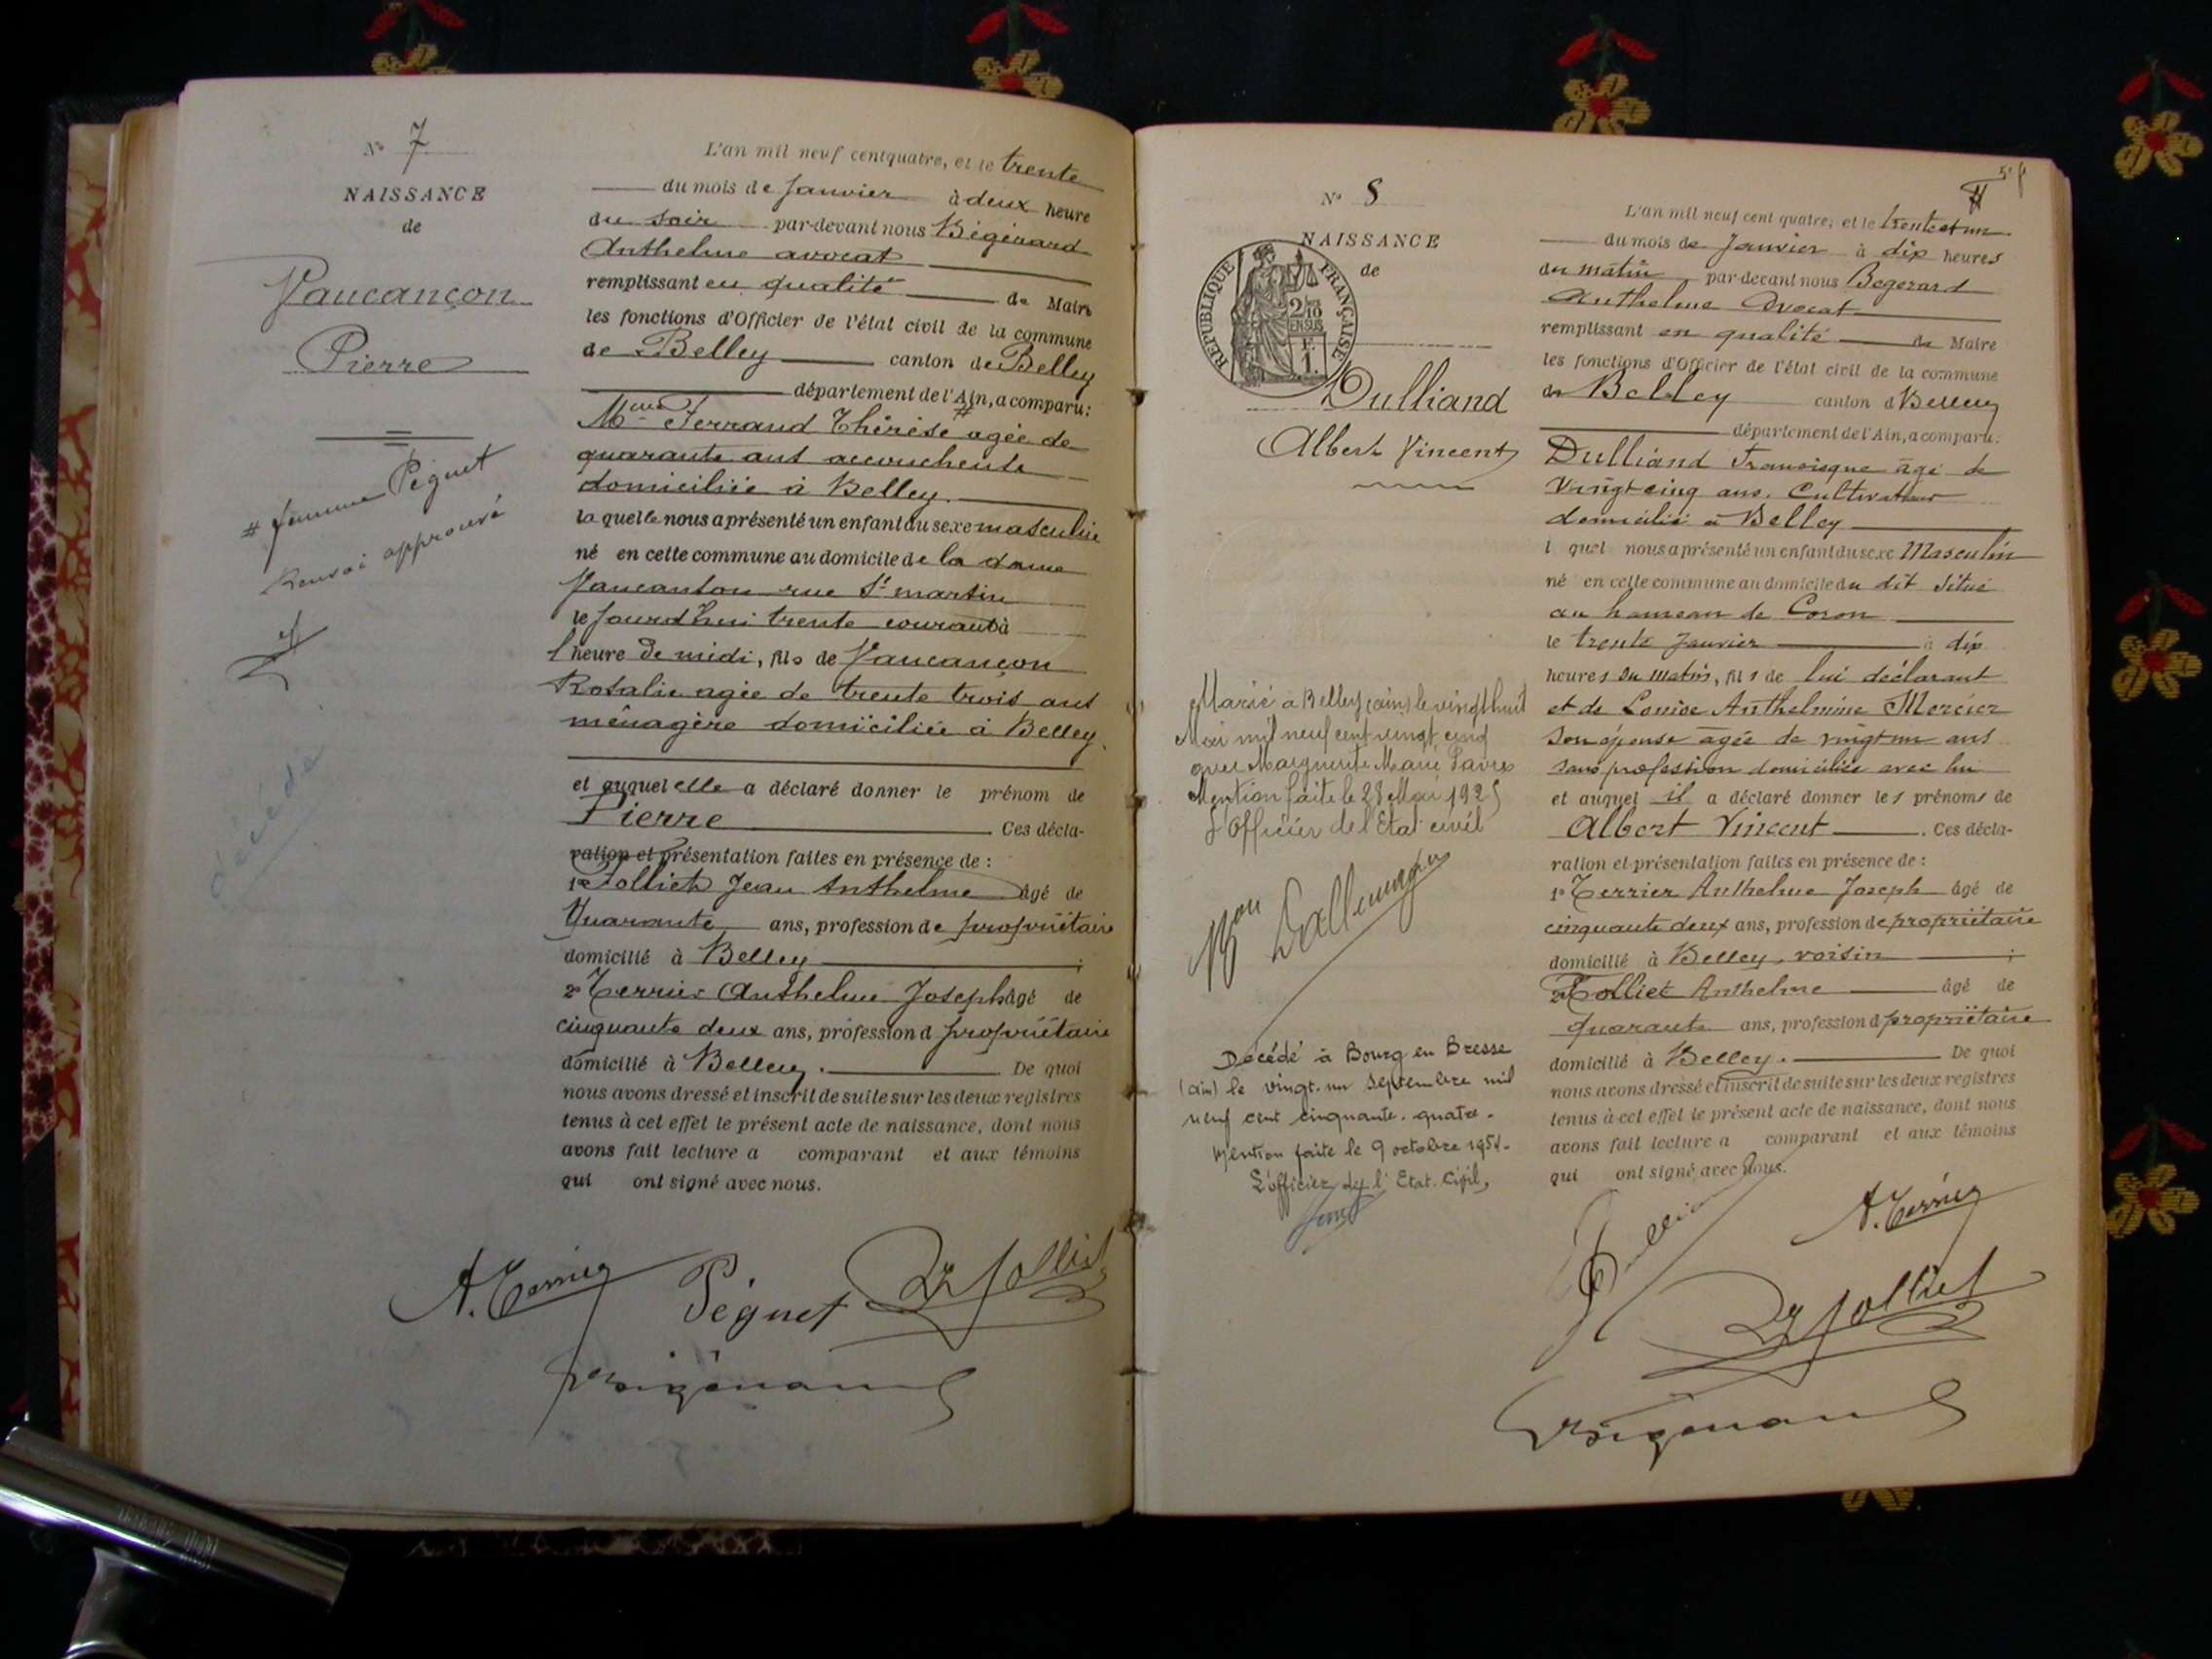 N° 7
NAISSANCE
de
Vaucançon
Pierre
# femme Péguet
Renvoi approuvé
décédé
L'an mil neuf cent quatre, et le trente
du mois de Janvier à deux heure
du soir par-devant nous Bégérard
Anthelme avocat
remplissant en qualité de Maire
les fonctions d'Officier de l'état civil de la commune
de Belley canton de Belley
département de l'Ain, a comparu:
Mme Ferrand Thérèse # agée de
quarante ans accoucheuse
domiciliée à Belley.
laquelle nous a présenté un enfant du sexe masculin
né en cette commune au domicile de la dame
Vaucanson rue St martin
le Jourd'hui trente courant à
1 heure de midi, fils de Vaucançon
Rosalie agée de trente trois ans
ménagère domiciliée à Belley.
et auquel elle a déclaré donner le prénom de
Pierre Ces décla-
ration et présentation faites en présence de :
1° Folliet Jean Anthelme âgé de
Quarante ans, profession de propriétaire
domicilié à Belley ;
2° Terrier Anthelme Joseph âgé de
cinquante deux ans, profession d propriétaire
domicilié à Belley. De quoi
nous avons dressé et inscrit de suite sur les deux registres
tenus à cet effet le présent acte de naissance, dont nous
avons fait lecture a comparant et aux témoins
qui ont signé avec nous.
A. Terrier Péguet Folliet
Bigérard
N° 8
NAISSANCE
de
RÉPUBLIQUE FRANÇAISE
2/10
EN SUS
F.
1.
Dulliand
Albert Vincent
Marié à Belley (ain) le vingt huit
Mai mil neuf cent vingt cinq
avec Marguerite Marie Favre
Mention faite le 28 Mai 1925
L'Officier de l'Etat civil
Décédé à Bourg en Bresse
(ain) le vingt-un septembre mil
neuf cent cinquante-quatre.
Mention faite le 9 octobre 1954.
L'officier de l'Etat-Civil,
L'an mil neuf cent quatre, et le trente et un
du mois de Janvier à dix heures
du matin par-devant nous Begerard
Anthelme Avocat
remplissant en qualité de Maire
les fonctions d'Officier de l'état civil de la commune
de Belley canton d Belley
département de l'Ain, a comparu:
Dulliand Francisque âgé de
Vingt cinq ans. Cultivateur
domicilié à Belley
l quel nous a présenté un enfant du sexe Masculin
né en cette commune au domicile du dit situé
au hameau de Coron
le trente Janvier à dix
heures du matin, fils de lui déclarant
et de Louise Anthelmine Mercier
son épouse âgée de vingt un ans
sans profession domiciliée avec lui
et auquel il a déclaré donner les prénoms de
Albert Vincent . Ces décla-
ration et présentation faites en présence de :
1° Terrier Anthelme Joseph âgé de
cinquante deux ans, profession de propriétaire
domicilié à Belley, voisin ;
2° Folliet Anthelme âgé de
quarante ans, profession d propriétaire
domicilié à Belley. De quoi
nous avons dressé et inscrit de suite sur les deux registres
tenus à cet effet le présent acte de naissance, dont nous
avons fait lecture a comparant et aux témoins
qui ont signé avec nous.
A. Terrier
Folliet
Bigérard